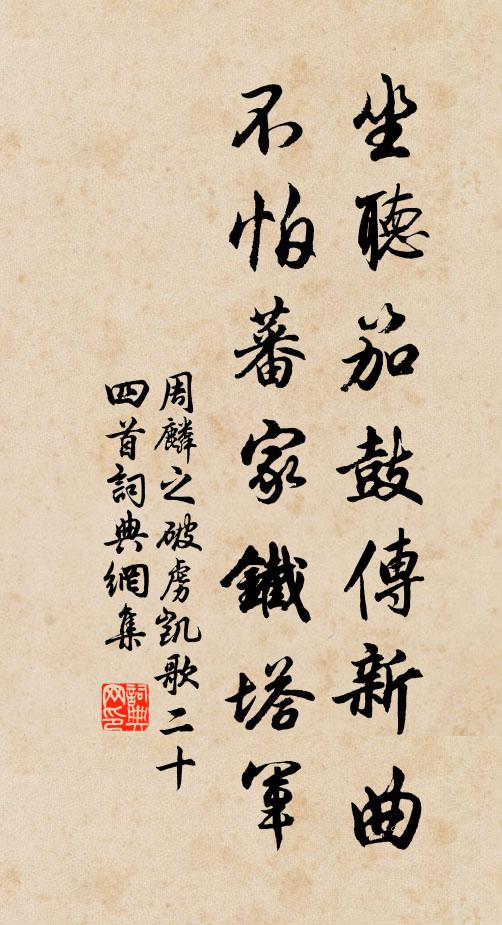 坐聽笳鼓傳新曲
不怕蕃家鐵塔軍
周麟之破虜凱歌二十
四首詞典網集
詞典网印